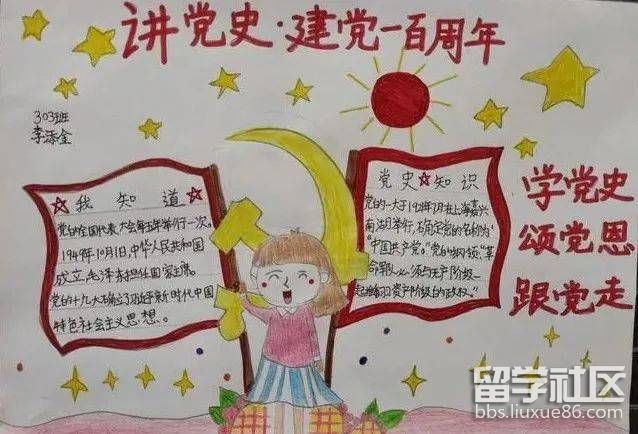 讲党史·建党一百周年
303班
李添金
我知道
党的全国代表大会每五年举行一次。
1949年10月1日,中华人民共和国
成立,毛泽东担任国家主席。
党的十九大确立习近平新时代中国
特色社会主义思想。
党史知识
党的一大于1921年7月在上海嘉兴
南湖举行,确定党的名称为
"中国共产党。"党的纲领:"革
命军队必须与无产阶级一
起推翻资产阶级的政权。"
学党史
颂党恩
跟党走
留学社区
bbs.liuxue86.com